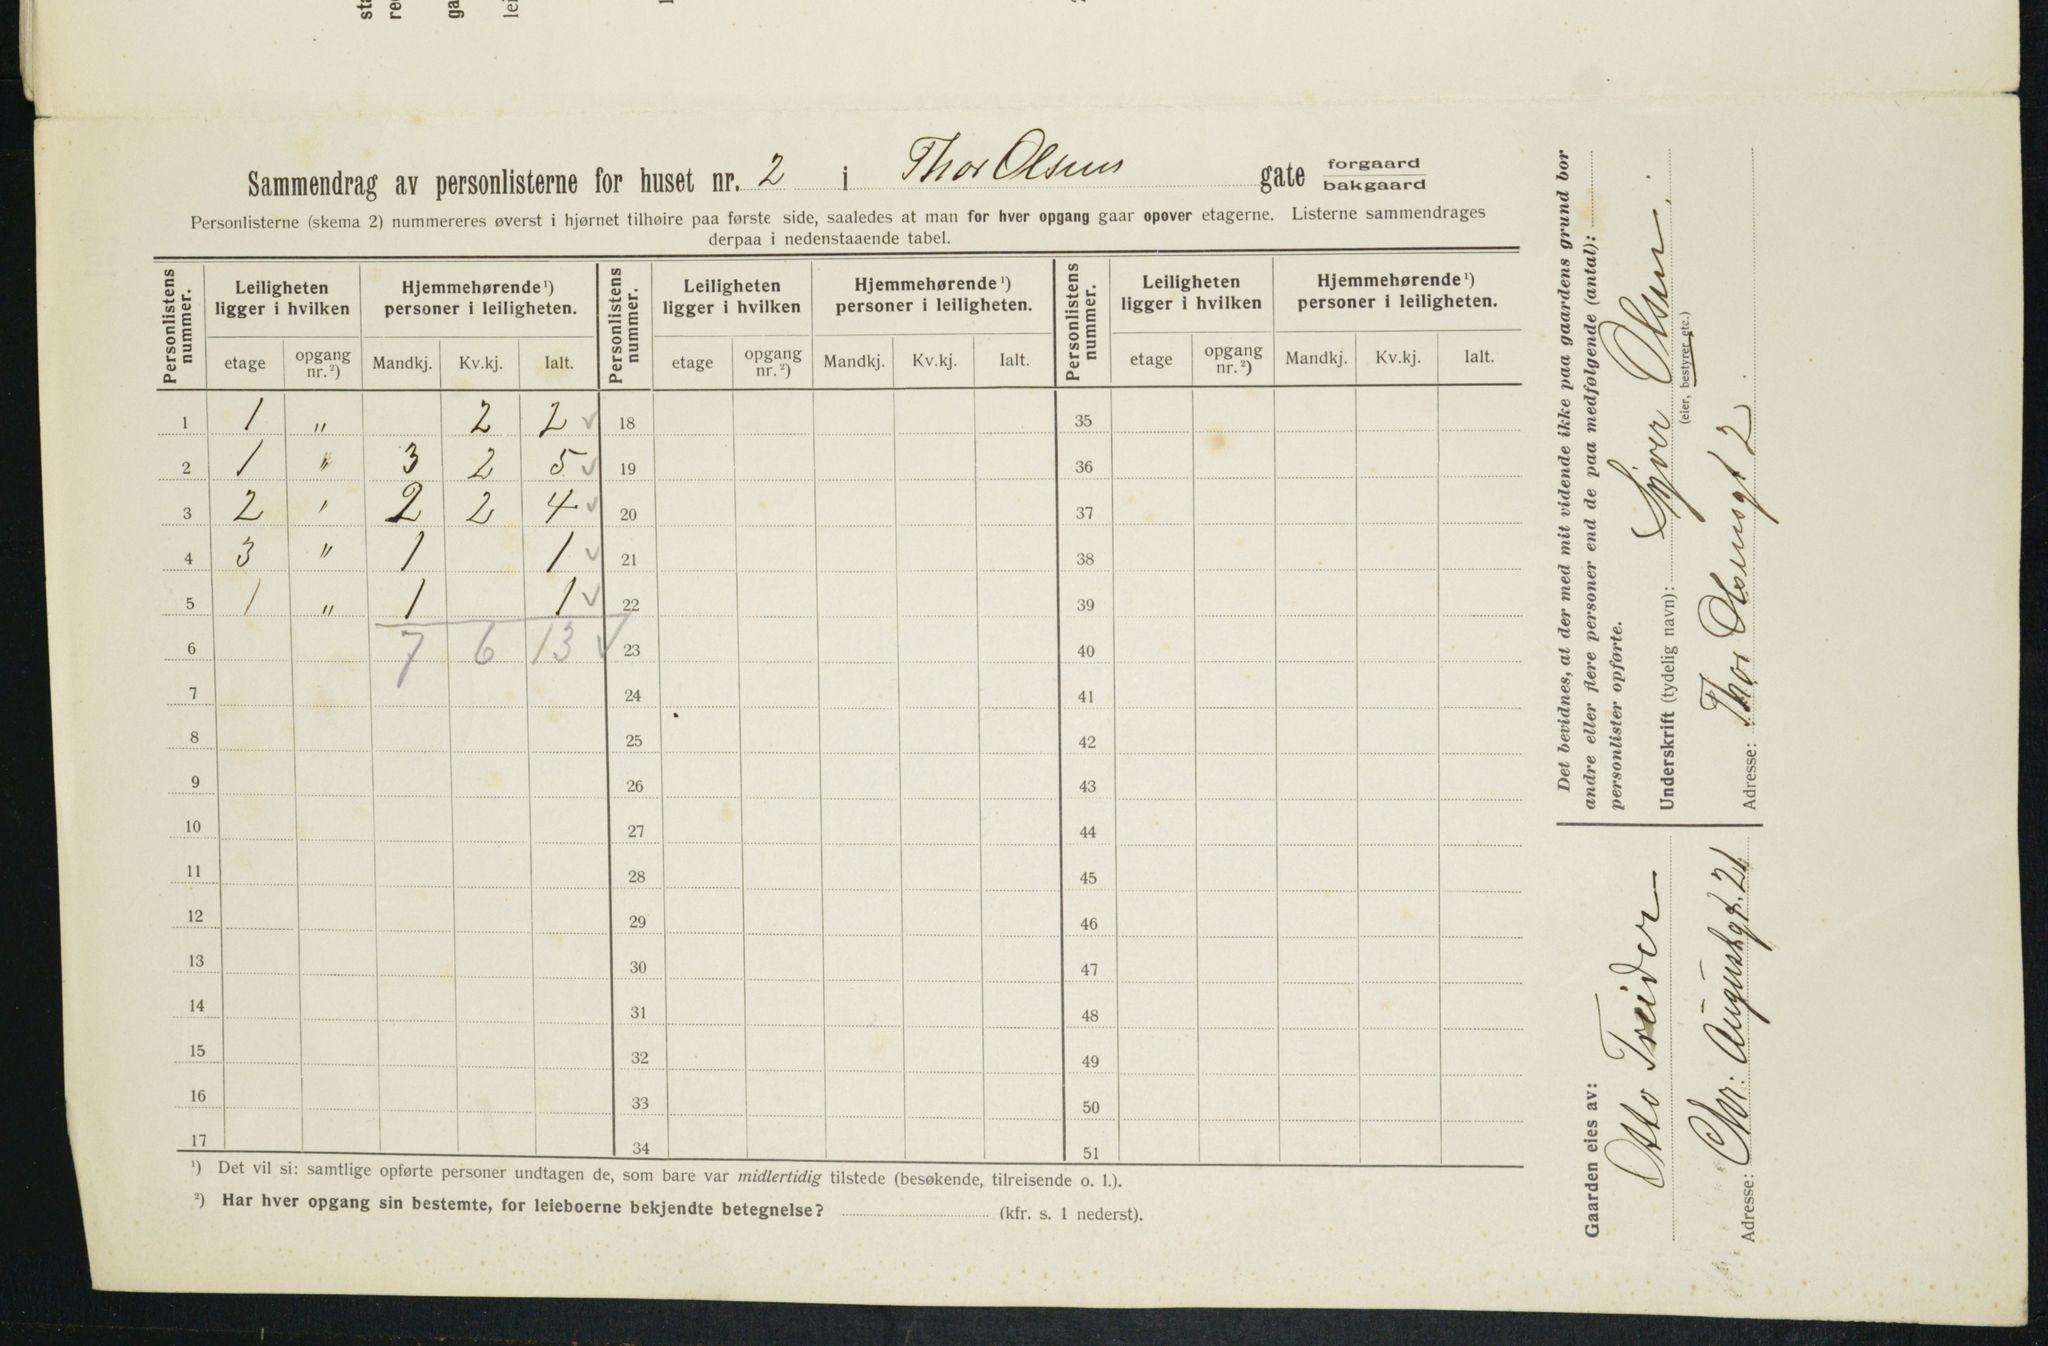 Sammendrag av personlisterne for huset nr. 2 i Thor Olsens gate forgaard bakgaard
Personlisterne (skema 2) nummereres øverst i hjørnet tilhøire paa første side, saaledes at man for hver opgang gaar opover etagerne. Listerne sammendrages
derpaa i nedenstaaende tabel.
Personlistens nummer. Leiligheten ligger i hvilken Hjemmehørende ¹) personer i leiligheten. Personlistens nummer. Leiligheten ligger i hvilken Hjemmehørende ¹) personer i leiligheten. Personlistens nummer. Leiligheten ligger i hvilken Hjemmehørende ¹) personer i leiligheten.
etage opgang nr. ²) Mandkj. Kv.kj. Ialt. etage opgang nr. ²) Mandkj. Kv.kj. Ialt. etage opgang nr. ²) Mandkj. Kv.kj. Ialt.
1 1 " 2 2 ✓ 18 35
2 1 " 3 2 5 ✓ 19 36
3 2 " 2 2 4 ✓ 20 37
4 3 " 1 1 ✓ 21 38
5 1 " 1 1 ✓ 22 39
6 7 6 13 ✓ 23 40
7 24 41
8 25 42
9 26 43
10 27 44
11 28 45
12 29 46
13 30 47
14 31 48
15 32 49
16 33 50
17 34 51
¹) Det vil si: samtlige opførte personer undtagen de, som bare var midlertidig tilstede (besøkende, tilreisende o. l.).
²) Har hver opgang sin bestemte, for leieboerne bekjendte betegnelse? (kfr. s. 1 nederst).
Det bevidnes, at der med mit vidende ikke paa gaardens grund bor
andre eller flere personer end de paa medfølgende (antal):
personlister opførte.
Underskrift (tydelig navn): Olsen.
(eier, bestyrer etc.)
Adresse: Thor Olsensgt 2.
Gaarden eies av:
Otto Treider
Adresse: Chr: Augustsgt. 21